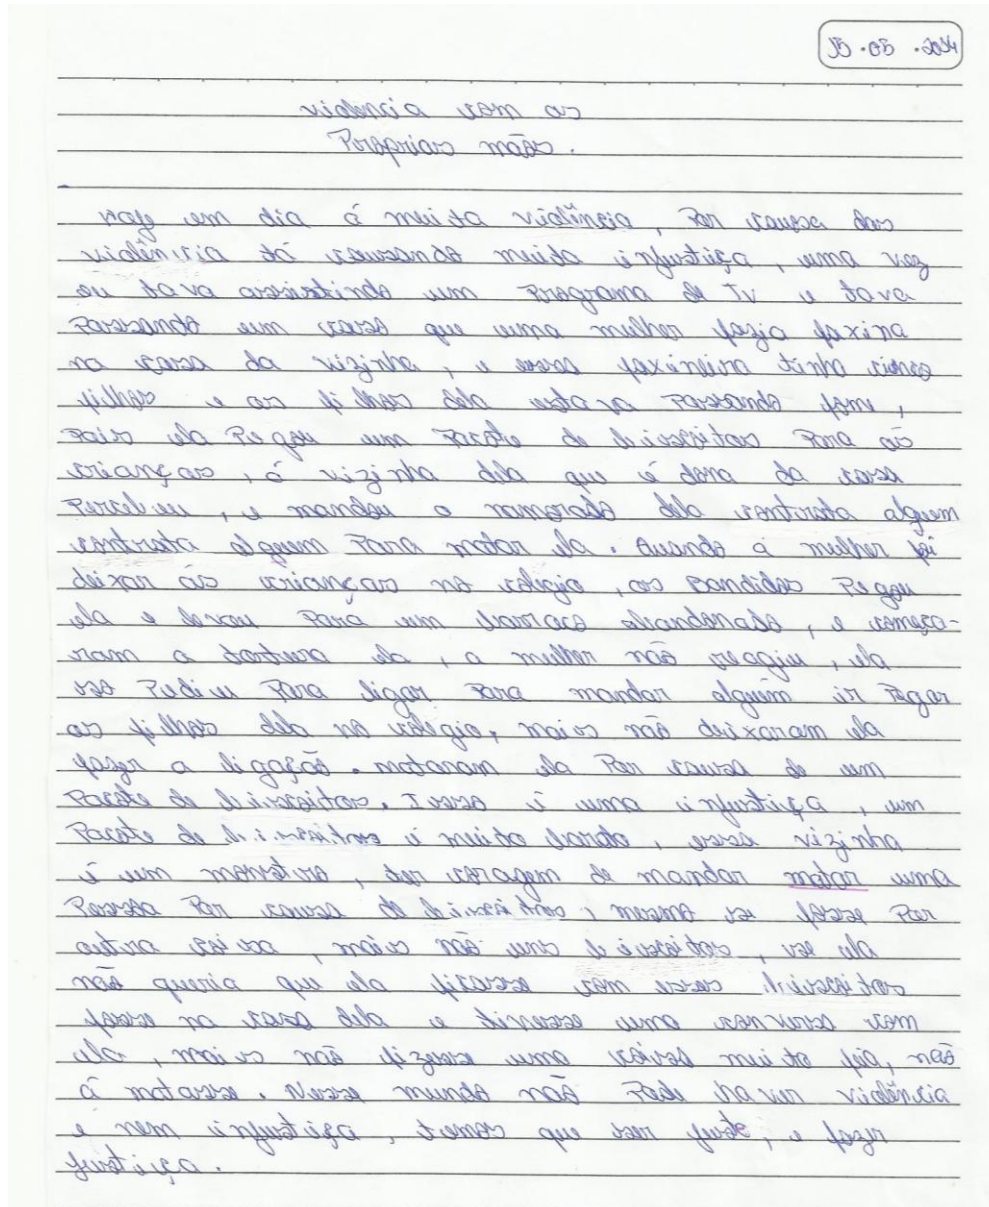 15.05.2014
violencia com as
Proprias mãos.
hoje em dia á muita violência, Por causa das
violência tá causando muita injustiça, uma vez
eu tava assistindo um Programa de TV e tava
Passando um caso que uma mulher fazia faxina
na casa da vizinha, e essa faxineira tinha cinco
filhos e os filhos dela estava Passando fome,
Pois ela Pegou um Pacote de biscoitos Para as
crianças, á vizinha dela que é dona da casa
Percebeu, e mandou o namorado dela contrata alguem
contrata alguem Para matar ela. Quando a mulher foi
deixar ás crianças no colegio, os Bandidos Pegou
ela e levou Para um barraco abandonado, e começa-
ram a tortura ela, a mulher não reagiu, ela
só Pediu Para ligar Para mandar alguém ir Pegar
os filhos dela no colegio, mais não deixaram ela
fazer a ligação. mataram ela Por causa de um
Pacote de biscoitos. Isso é uma injustiça, um
Pacote de biscoitos é muito barato, essa vizinha
é um monstro, ter coragem de mandar matar uma
Pessoa Por causa de biscoitos, mesmo se fosse Por
outra coisa, mais não uns biscoitos, se ela
não queria que ela ficasse com esses biscoitos
fosse na casa dela e tivesse uma conversa com
ela, mais não fizesse uma coisa muito feia, não
á matasse. Nesse mundo não Pode haver violência
e nem injustiça, temos que ser justo, e fazer
justiça.